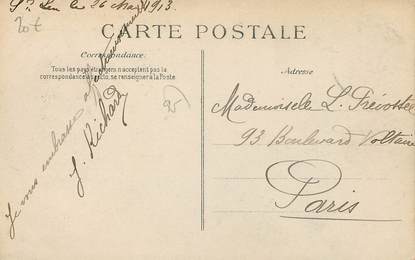 St Leu le 26 Mai 1913.
20€
CARTE POSTALE
Correspondance
Tous les pays étrangers n'acceptent pas la
correspondance au recto, se renseigner à la Poste.
Je vous embrasse affectueusement
J. Richard
25
Adresse
Mademoiselle L. Prévostel
93 Boulevard Voltaire
Paris